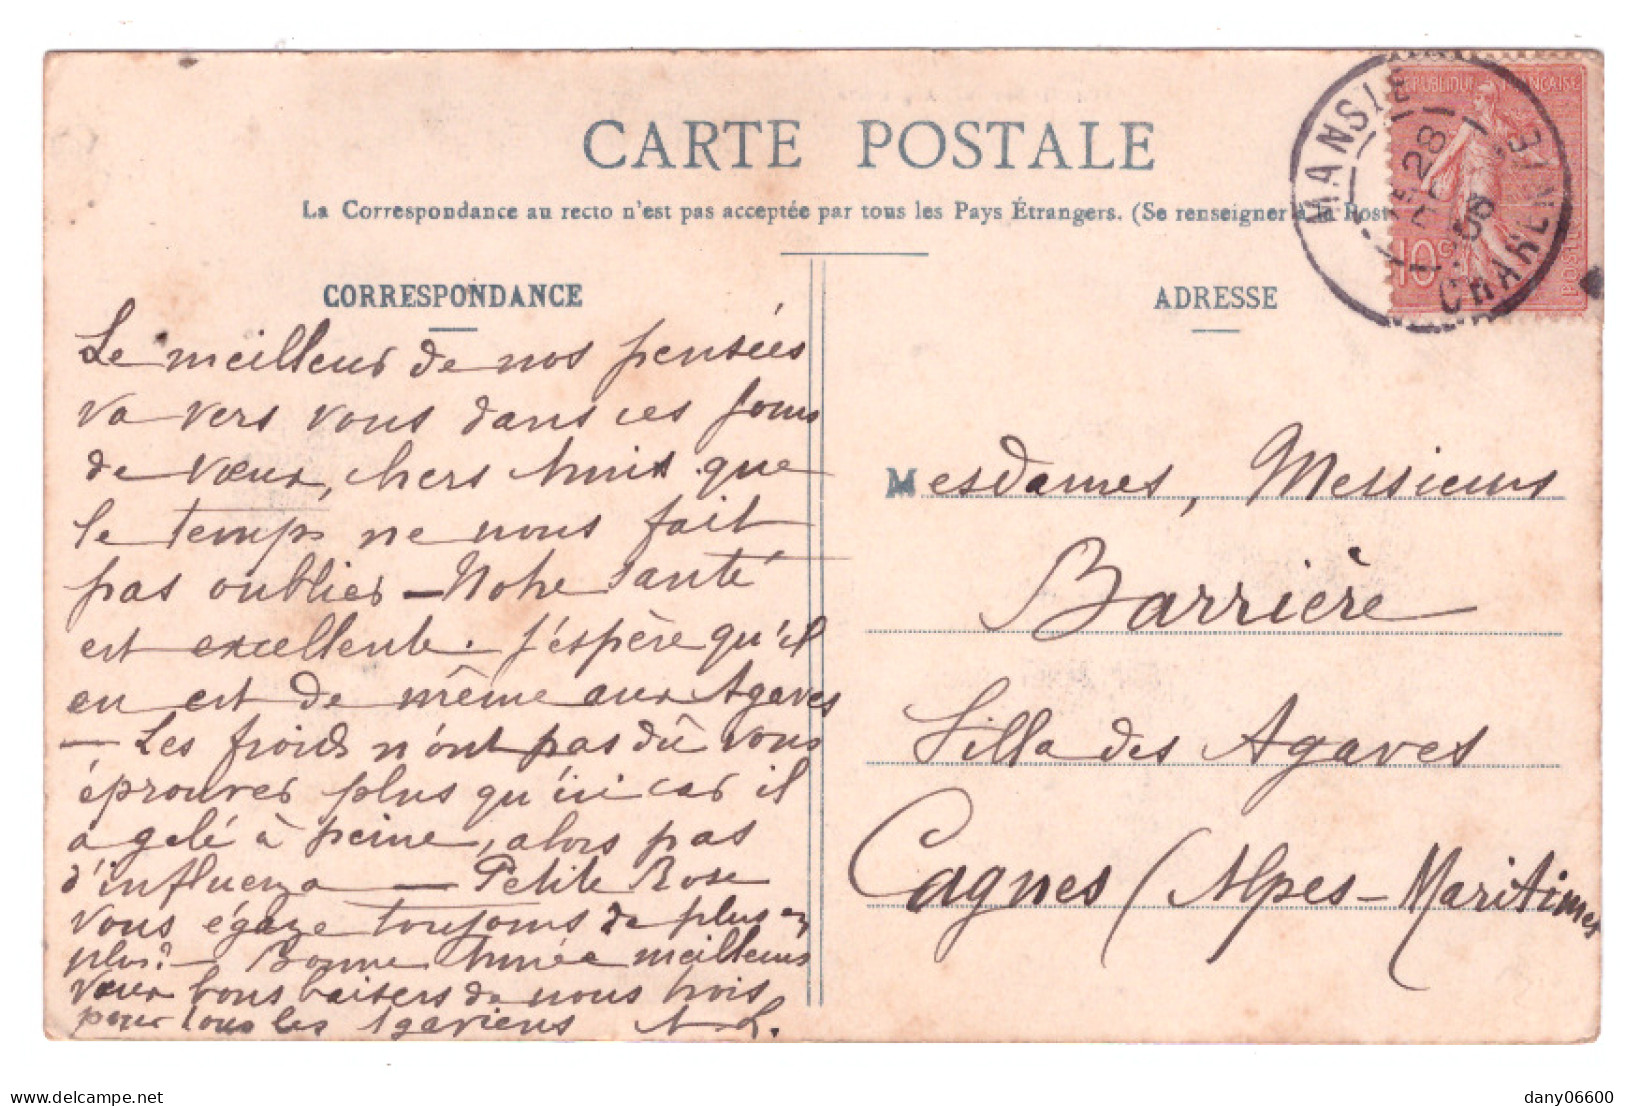 CARTE POSTALE
La Correspondance au recto n'est pas acceptée par tous les Pays Étrangers. (Se renseigner à la Poste
CORRESPONDANCE
Le meilleur de nos pensées
va vers vous dans ces jours
de vœux, chers Amis que
le temps ne nous fait
pas oublier — Notre santé
est excellente. J'espère qu'il
en est de même aux Agaves
— Les froids n'ont pas dû vous
éprouver plus qu'ici car il
a gelé à peine, alors pas
d'influenza — Petite Rose
vous égaze toujours de plus en
plus? — Bonne Année meilleurs
vœux bons baisers de nous trois
pour tous les Agaviens A. L.
ADRESSE
Mesdames, Messieurs
Barrière
Villa des Agaves
Cagnes (Alpes-Maritimes
REPUBLIQUE FRANÇAISE
10c
POSTES
MANSLE
28
CHARENTE
delcampe.net
dany06600